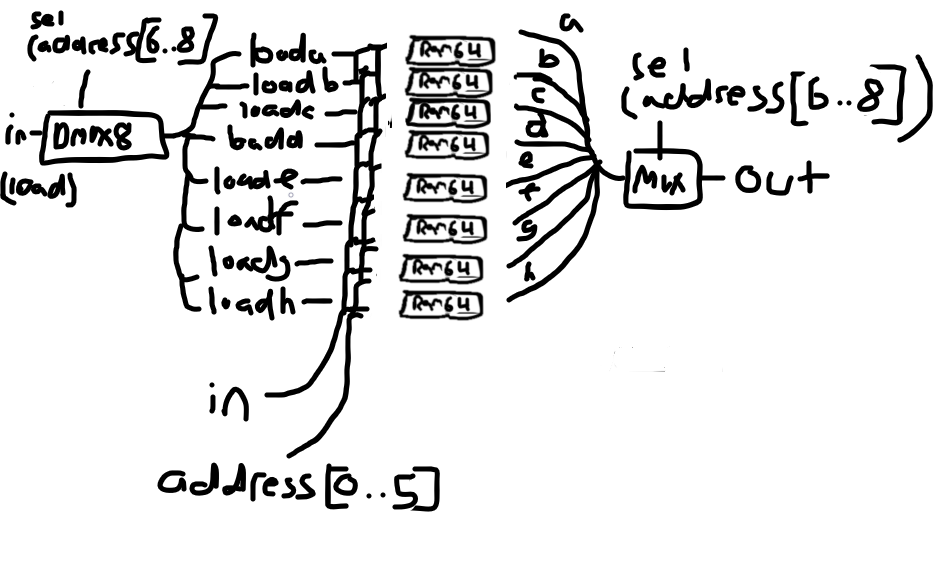 sel
(address[6..8]
in
Dmux8
(load)
loada
loadb
loadc
loadd
loade
loadf
loadg
loadh
Ram64
Ram64
Ram64
Ram64
Ram64
Ram64
Ram64
Ram64
a
b
c
d
e
f
g
h
sel
(address[6..8])
Mux
out
in
address[0..5]